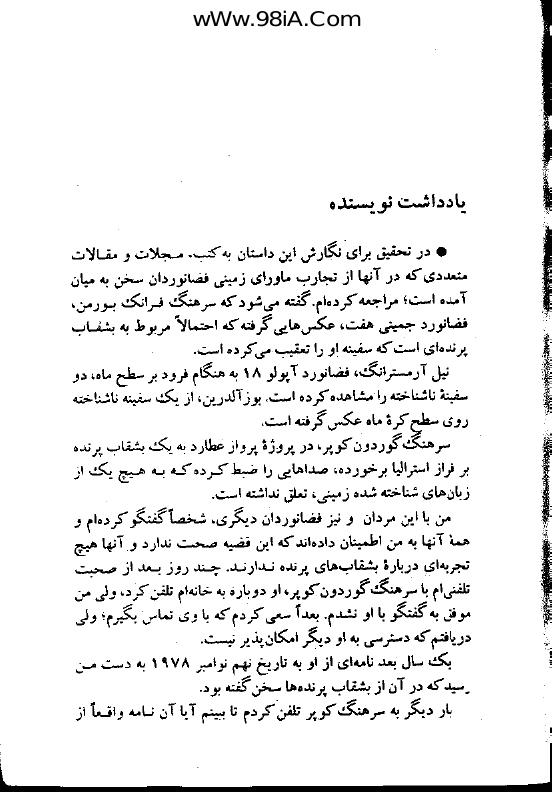 wWw.98iA.Com
یادداشت نویسنده
● در تحقیق برای نگارش این داستان به کتب، مجلات و مقالات
متعددی که در آنها از تجارب ماورای زمینی فضانوردان سخن به میان
آمده است؛ مراجعه کرده‌ام. گفته می‌شود که سرهنگ فرانک بورمن،
فضانورد جمینی هفت، عکس‌هایی گرفته که احتمالاً مربوط به بشقاب
پرنده‌ای است که سفینه او را تعقیب می‌کرده است.
نیل آرمسترانگ، فضانورد آپولو ۱۸ به هنگام فرود بر سطح ماه، دو
سفینهٔ ناشناخته را مشاهده کرده است. بوز آلدرین، از یک سفینه ناشناخته
روی سطح کرهٔ ماه عکس گرفته است.
سرهنگ گوردون کوپر، در پروژهٔ پرواز عطارد به یک بشقاب پرنده
بر فراز استرالیا برخورده، صداهایی را ضبط کرده که به هیچ یک از
زبان‌های شناخته شده زمینی، تعلق نداشته است.
من با این مردان و نیز فضانوردان دیگری، شخصاً گفتگو کرده‌ام و
همهٔ آنها به من اطمینان داده‌اند که این قضیه صحت ندارد و آنها هیچ
تجربه‌ای دربارهٔ بشقاب‌های پرنده ندارند. چند روز بعد از صحبت
تلفنی‌ام با سرهنگ گوردون کوپر، او دوباره به خانه‌ام تلفن کرد، ولی من
موفق به گفتگو با او نشدم. بعداً سعی کردم که با وی تماس بگیرم؛ ولی
دریافتم که دسترسی به او دیگر امکان‌پذیر نیست.
یک سال بعد نامه‌ای از او به تاریخ نهم نوامبر ۱۹۷۸ به دست من
رسید که در آن از بشقاب پرنده‌ها سخن گفته بود.
بار دیگر به سرهنگ کوپر تلفن کردم تا ببینم آیا آن نامه واقعاً از